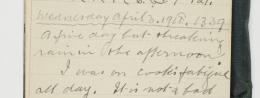 Wednesday April 3. 1918. 1339
A fine day but threatening
rain in the afternoon.
I was on cook's fatigue
all day. It is not a bad